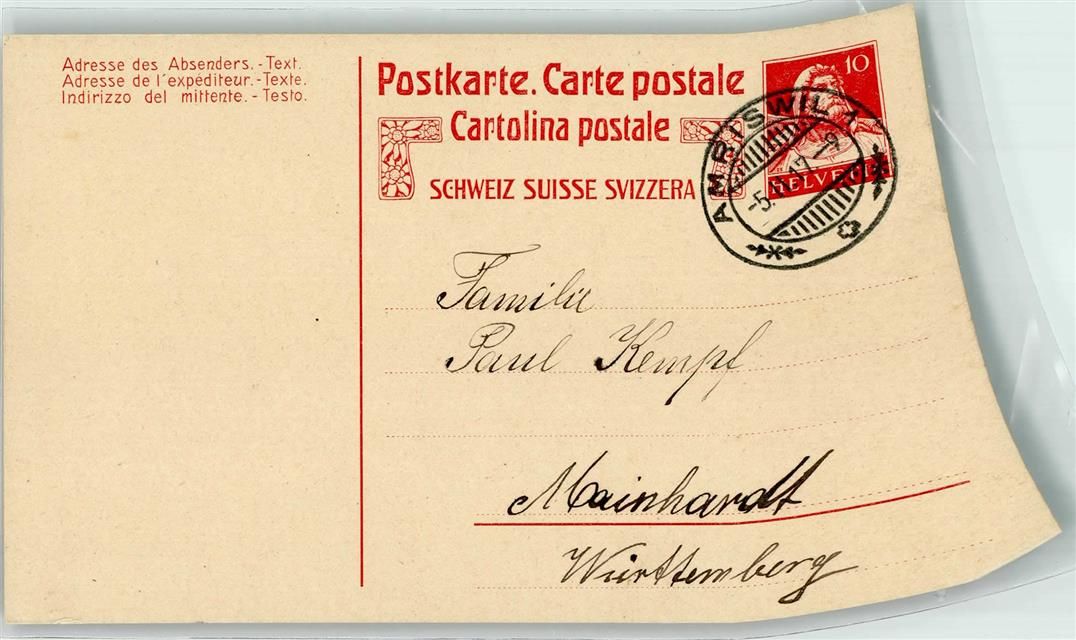 Adresse des Absenders. - Text.
Adresse de l'expéditeur. - Texte.
Indirizzo del mittente. - Testo.
Postkarte. Carte postale
Cartolina postale
SCHWEIZ SUISSE SVIZZERA
10
HELVETIA
AMRISWIL 1
Familie
Paul Kempf
Mainhardt
Württemberg